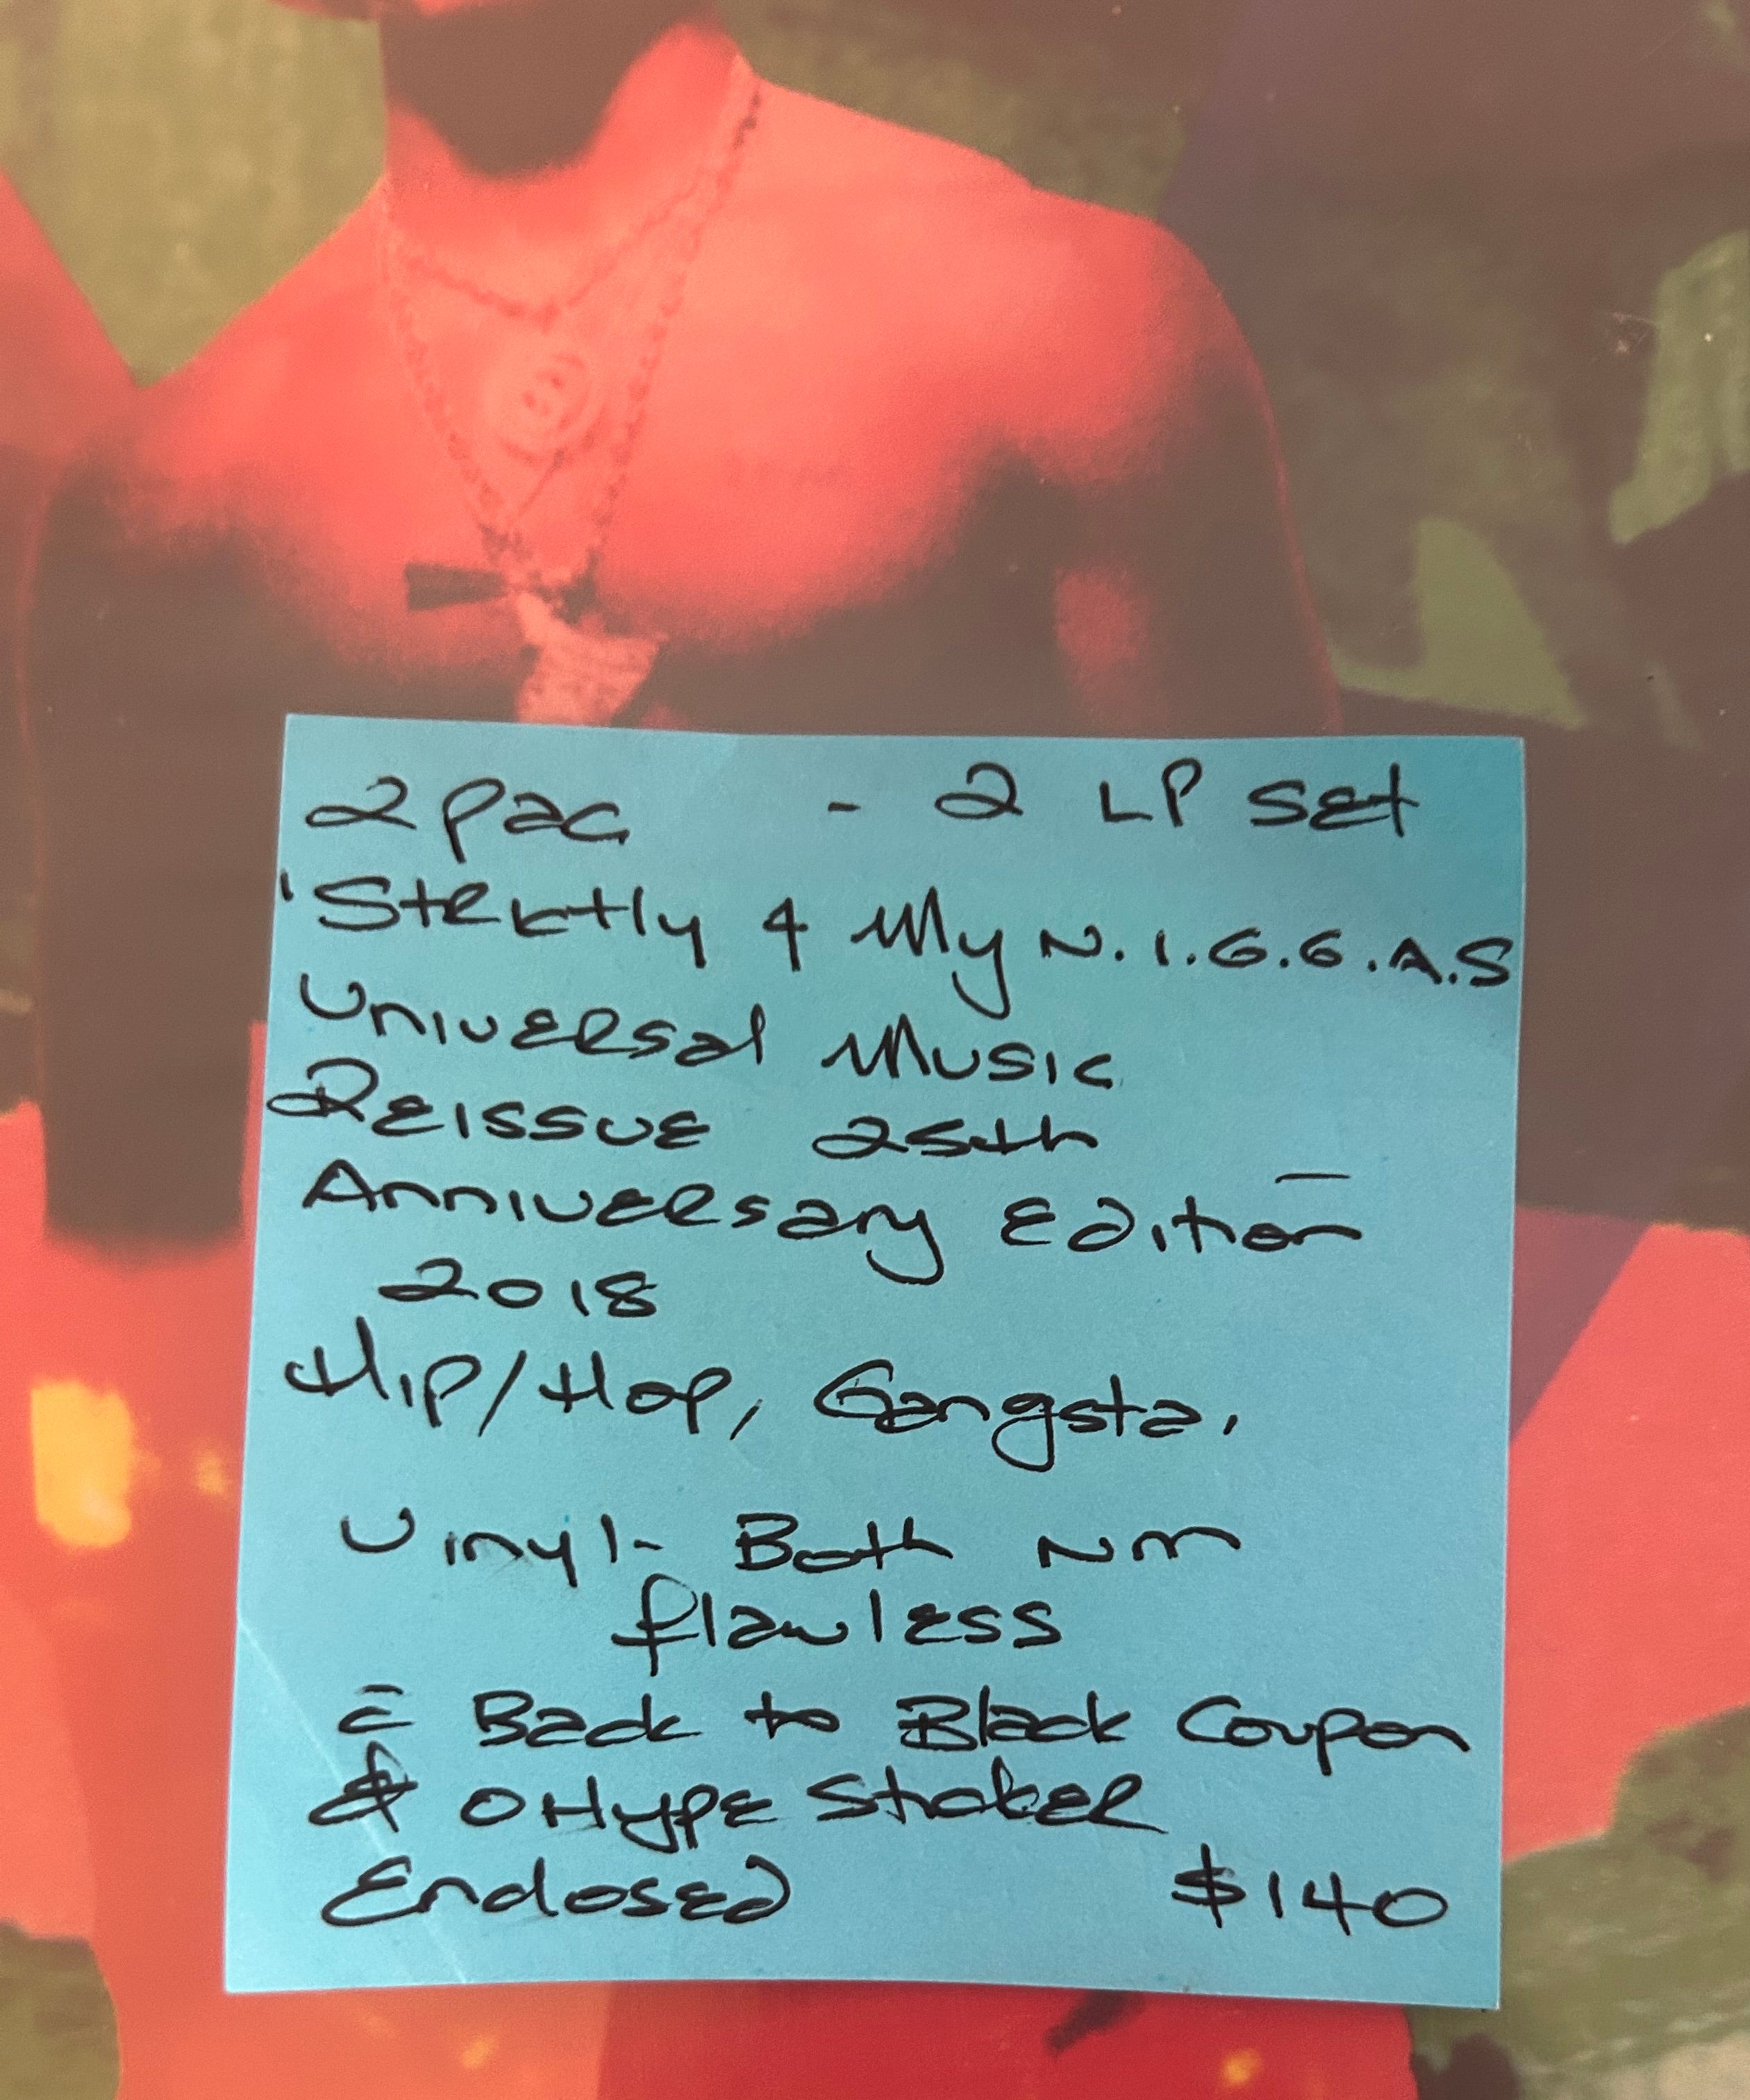 2pac - 2 LP Set
'Strictly 4 My N.I.G.G.A.S
Universal Music
Reissue 25th
Anniversary Edition -
2018
Hip/Hop, Gangsta,
Vinyl- Both NM
flawless
Back to Black Coupon
& Hype Sticker
Enclosed $140